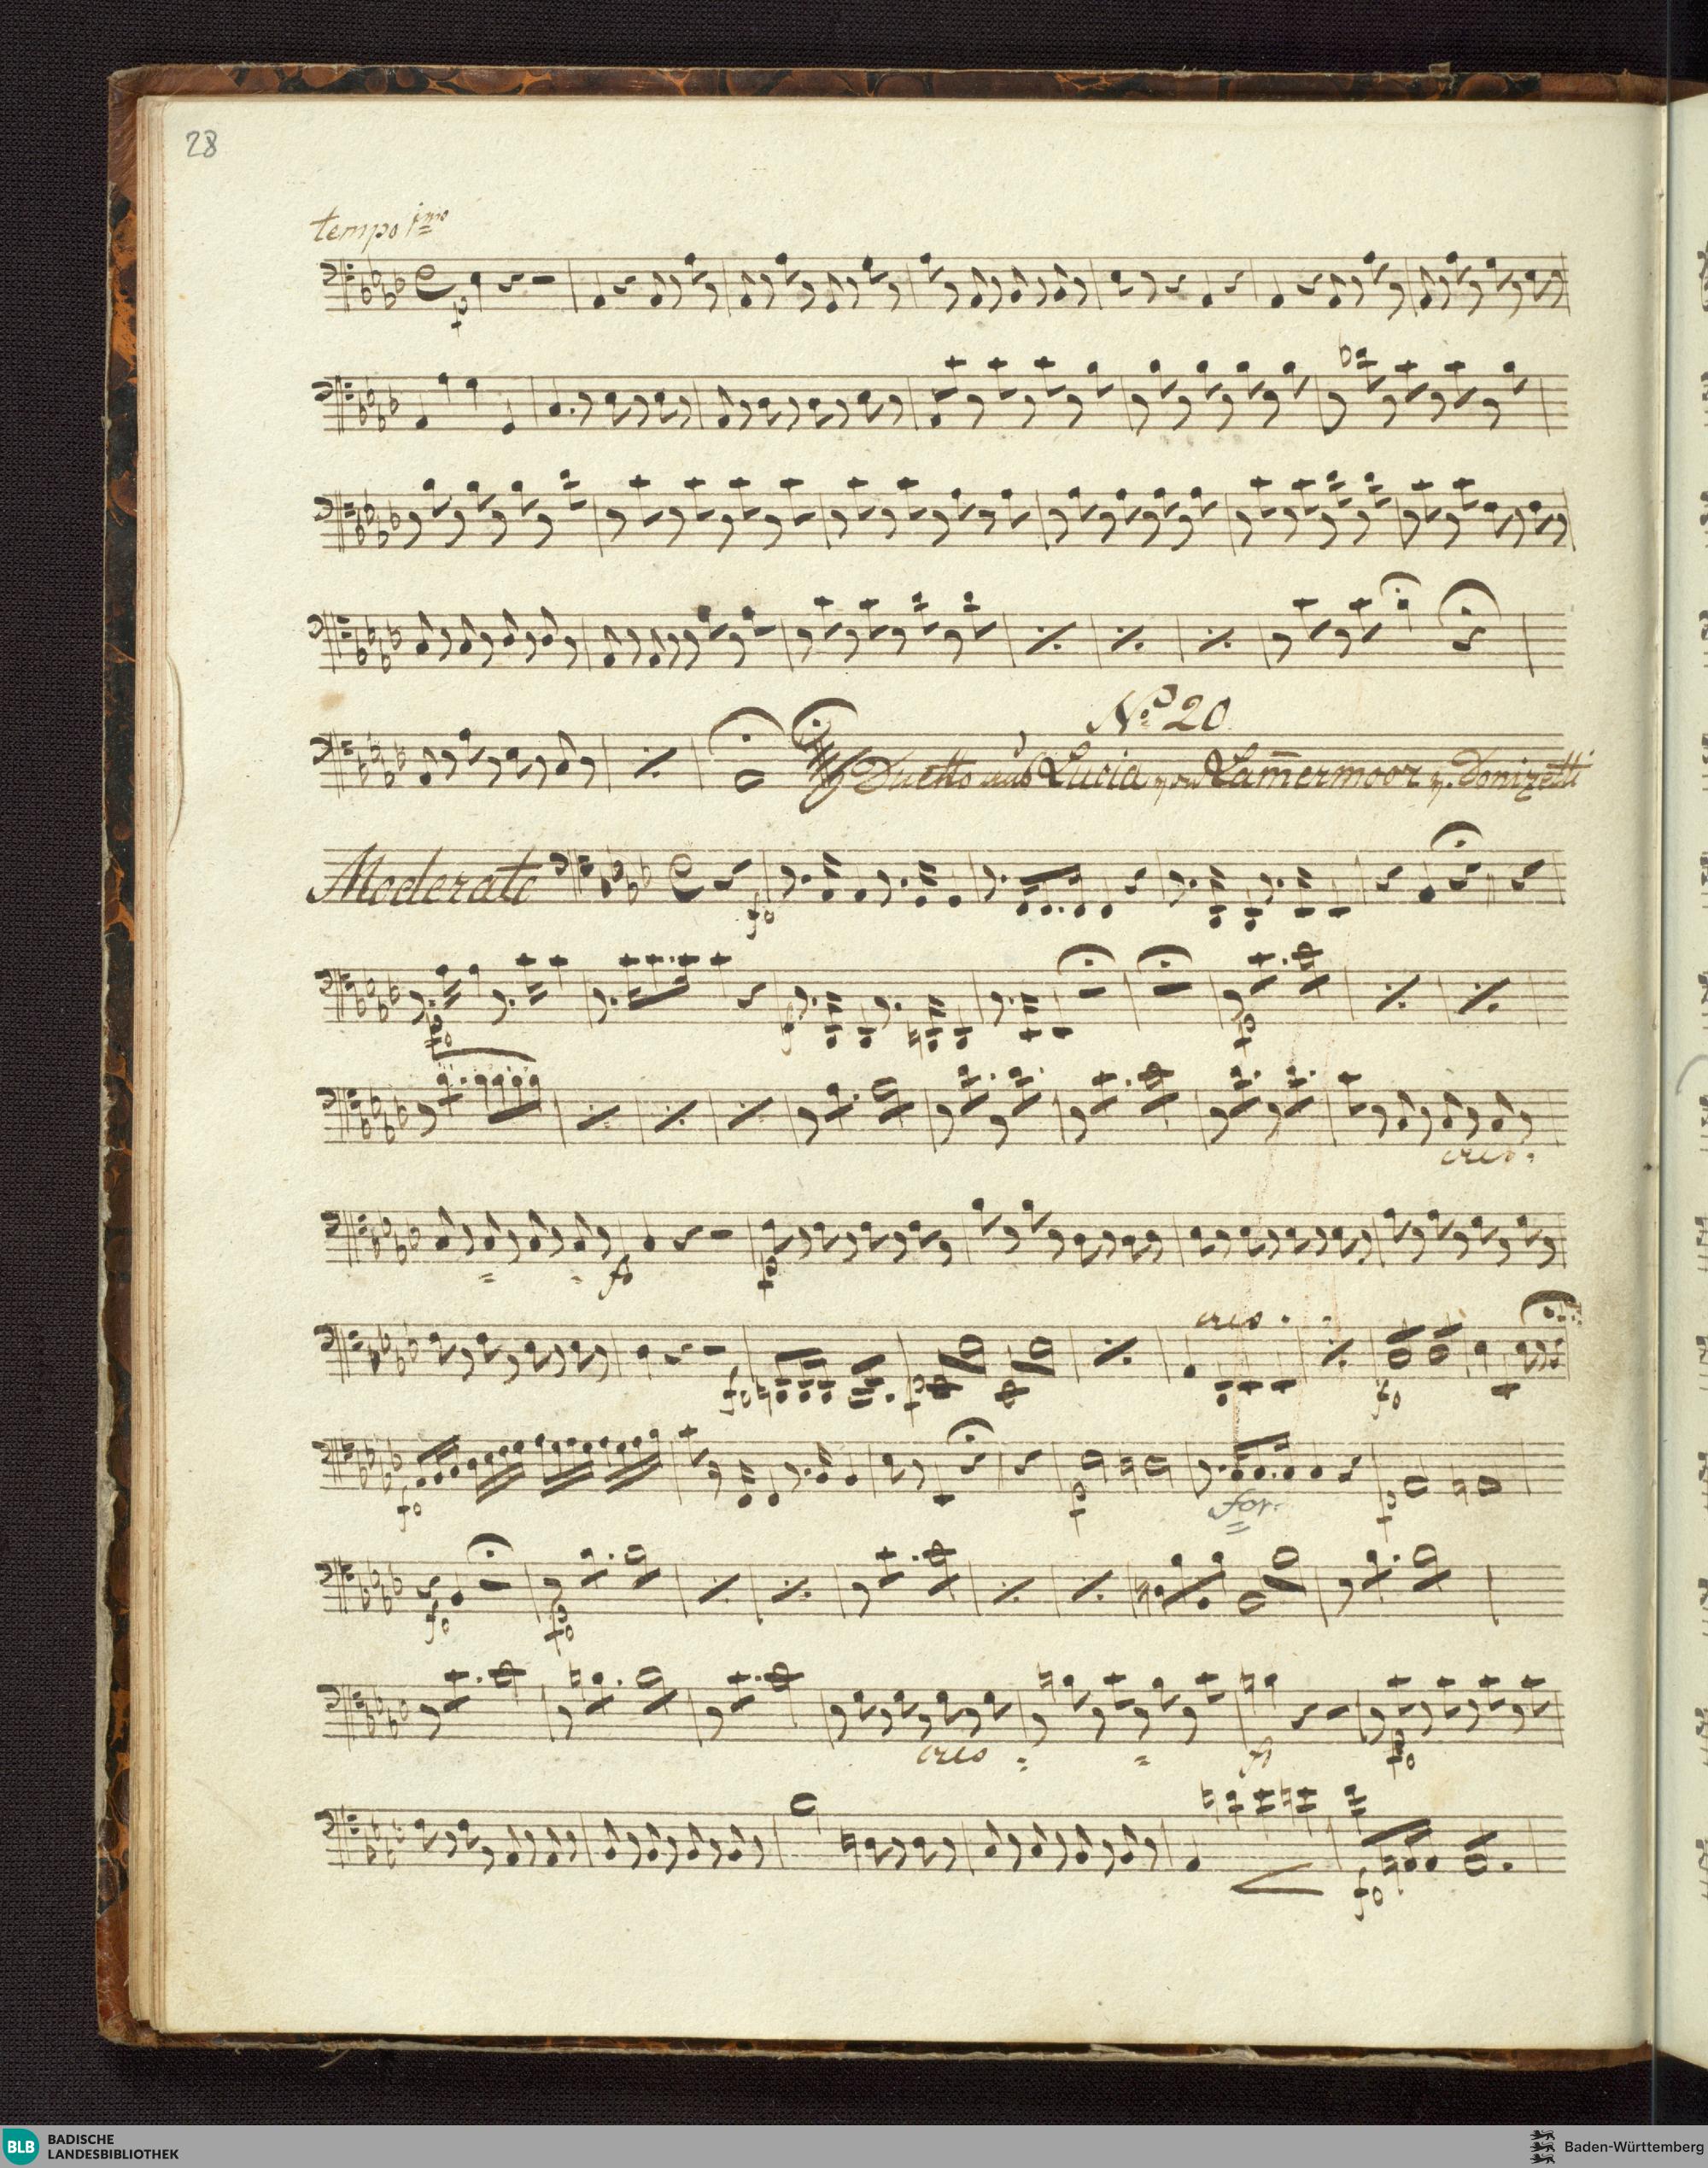 28
tempo 1mo
p
No 20
Duetto aus Lucia von Lam̅ermoor v. Donizetti
Moderato
fo
po
f
p
cres.
fo
p
cres.
fo
p
fo
fo
p
for.
p
fo
po
cres
f
po
fo
BLB BADISCHE
LANDESBIBLIOTHEK
Baden-Württemberg